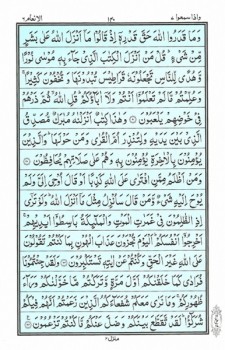 واذا سمعوا ٧ ١٣٠ الانعام ٦
وَمَا قَدَرُوا اللّٰهَ حَقَّ قَدْرِهٖۤ اِذْ قَالُوْا مَاۤ اَنْزَلَ اللّٰهُ عَلٰى بَشَرٍ
مِّنْ شَیْءٍ ؕ قُلْ مَنْ اَنْزَلَ الْكِتٰبَ الَّذِیْ جَآءَ بِهٖ مُوْسٰى نُوْرًا
وَّ هُدًى لِّلنَّاسِ تَجْعَلُوْنَهٗ قَرَاطِیْسَ تُبْدُوْنَهَا وَ تُخْفُوْنَ كَثِیْرًا ۚ
وَ عُلِّمْتُمْ مَّا لَمْ تَعْلَمُوْۤا اَنْتُمْ وَ لَاۤ اٰبَآؤُكُمْ ؕ قُلِ اللّٰهُ ۙ ثُمَّ ذَرْهُمْ
فِیْ خَوْضِهِمْ یَلْعَبُوْنَ وَ هٰذَا كِتٰبٌ اَنْزَلْنٰهُ مُبٰرَكٌ مُّصَدِّقُ
الَّذِیْ بَیْنَ یَدَیْهِ وَ لِتُنْذِرَ اُمَّ الْقُرٰى وَ مَنْ حَوْلَهَا ؕ وَ الَّذِیْنَ
یُؤْمِنُوْنَ بِالْاٰخِرَةِ یُؤْمِنُوْنَ بِهٖ وَ هُمْ عَلٰى صَلَاتِهِمْ یُحَافِظُوْنَ
وَ مَنْ اَظْلَمُ مِمَّنِ افْتَرٰى عَلَى اللّٰهِ كَذِبًا اَوْ قَالَ اُوْحِیَ اِلَیَّ وَ لَمْ
یُوْحَ اِلَیْهِ شَیْءٌ وَّ مَنْ قَالَ سَاُنْزِلُ مِثْلَ مَاۤ اَنْزَلَ اللّٰهُ ؕ وَ لَوْ تَرٰۤى
اِذِ الظّٰلِمُوْنَ فِیْ غَمَرٰتِ الْمَوْتِ وَ الْمَلٰٓىِٕكَةُ بَاسِطُوْۤا اَیْدِیْهِمْ ۚ
اَخْرِجُوْۤا اَنْفُسَكُمْ ؕ اَلْیَوْمَ تُجْزَوْنَ عَذَابَ الْهُوْنِ بِمَا كُنْتُمْ تَقُوْلُوْنَ
عَلَى اللّٰهِ غَیْرَ الْحَقِّ وَ كُنْتُمْ عَنْ اٰیٰتِهٖ تَسْتَكْبِرُوْنَ وَ لَقَدْ جِئْتُمُوْنَا
فُرَادٰى كَمَا خَلَقْنٰكُمْ اَوَّلَ مَرَّةٍ وَّ تَرَكْتُمْ مَّا خَوَّلْنٰكُمْ وَرَآءَ
ظُهُوْرِكُمْ ۚ وَ مَا نَرٰى مَعَكُمْ شُفَعَآءَكُمُ الَّذِیْنَ زَعَمْتُمْ اَنَّهُمْ فِیْكُمْ
شُرَكٰٓؤُا ؕ لَقَدْ تَّقَطَّعَ بَیْنَكُمْ وَ ضَلَّ عَنْكُمْ مَّا كُنْتُمْ تَزْعُمُوْنَ
منزل ٢